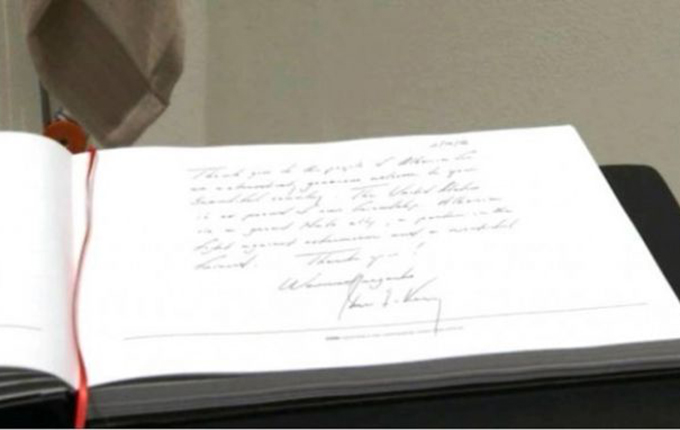 Thank you to the people of Albania for
an generous welcome to your
beautiful country. The United States
is so proud of our friendship. Albania
is a great NATO ally, a partner in the
fight against extremism and a wonderful
friend. Thank you!
Warmest regards